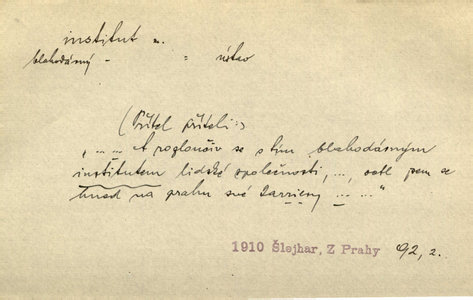 institut m.
blahodárný - " ústav
(Přítel příteli:)
„ ... ... A rozloučiv se s tím blahodárným
institutem lidské společnosti, ..., octl jsem se
hned na prahu své kariery ... ..."
1910 Šlejhar, Z Prahy 92, 2.